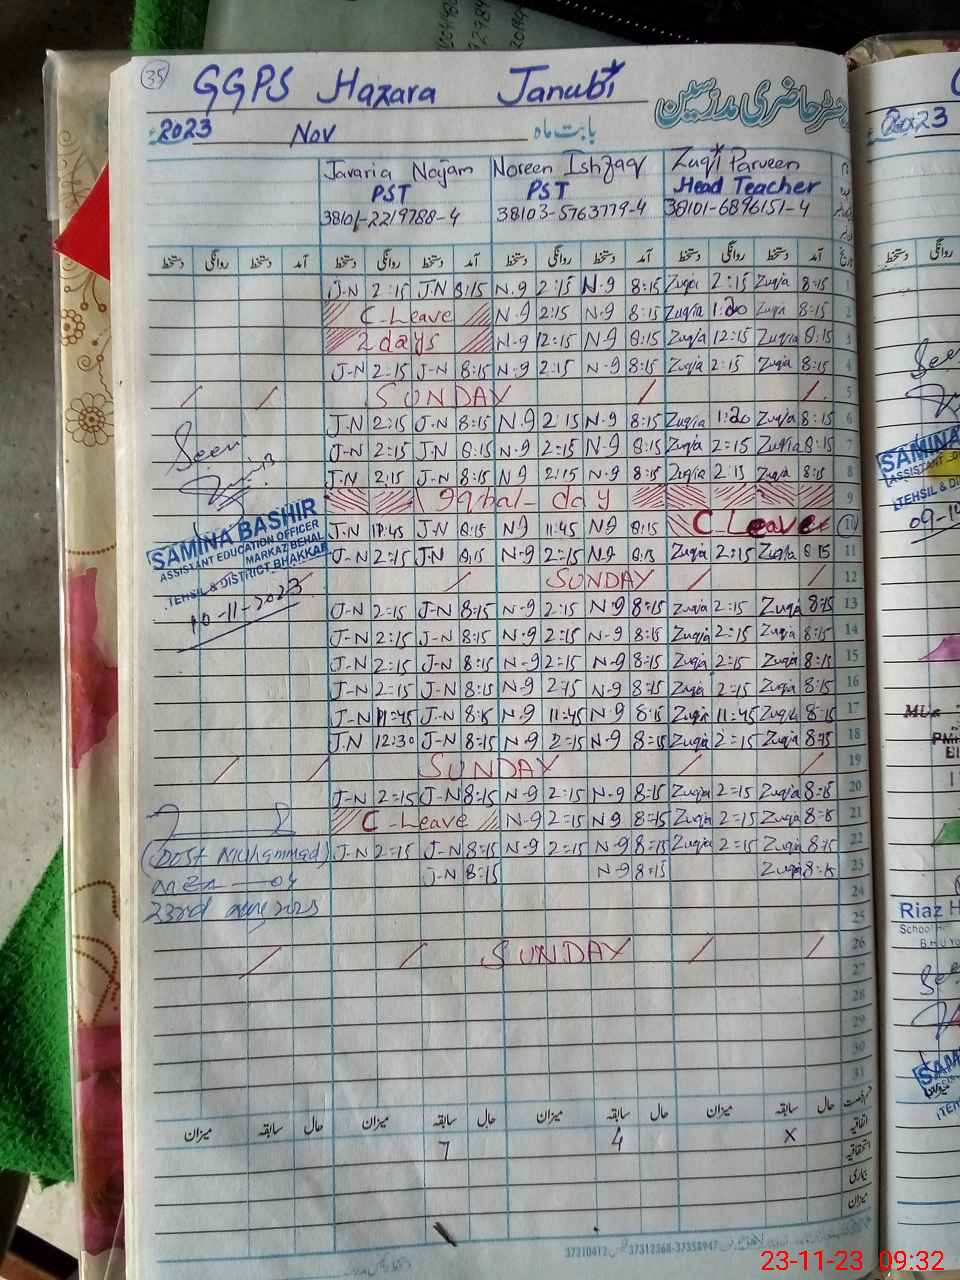 35
GGPS Hazara Janubi
رجسٹر حاضری مدرسین
2023 Nov بابت ماہ
Javaria Najam Noreen Ishfaq Zuqia Parveen
PST PST Head Teacher
38101-2219788-4 38103-5763779-4 38101-6896151-4
دستخط روانگی دستخط آمد دستخط روانگی دستخط آمد دستخط روانگی دستخط آمد دستخط روانگی دستخط آمد
J-N 2:15 J-N 8:15 N-9 2:15 N-9 8:15 Zuqia 2:15 Zuqia 8:15 1
C-Leave N-9 2:15 N-9 8:15 Zuqia 1:20 Zuqia 8:15 2
2 days N-9 12:15 N-9 8:15 Zuqia 12:15 Zuqia 8:15 3
J-N 2:15 J-N 8:15 N-9 2:15 N-9 8:15 Zuqia 2:15 Zuqia 8:15 4
SUNDAY 5
J-N 2:15 J-N 8:15 N-9 2:15 N-9 8:15 Zuqia 1:20 Zuqia 8:15 6
Seen J-N 2=15 J-N 8:15 N-9 2=15 N-9 8:15 Zuqia 2=15 Zuqia 8:15 7
J-N 2:15 J-N 8:15 N-9 2:15 N-9 8:15 Zuqia 2:15 Zuqia 8:15 8
Iqbal-day 9
J-N 11:45 J-N 8:15 N-9 11:45 N-9 8:15 C Leave 10
SAMINA BASHIR
ASSISTANT EDUCATION OFFICER
MARKAZ BEHAL
TEHSIL & DISTRICT BHAKKAR
10-11-2023
J-N 2=15 J-N 8:15 N-9 2=15 N-9 8:15 Zuqia 2=15 Zuqia 8:15 11
SUNDAY 12
J-N 2=15 J-N 8:15 N-9 2:15 N-9 8=15 Zuqia 2:15 Zuqia 8=15 13
J-N 2:15 J-N 8:15 N-9 2=15 N-9 8:15 Zuqia 2:15 Zuqia 8:15 14
J-N 2:15 J-N 8:15 N-9 2=15 N-9 8:15 Zuqia 2:15 Zuqia 8:15 15
J-N 2=15 J-N 8:15 N-9 2:15 N-9 8=15 Zuqia 2=15 Zuqia 8:15 16
J-N 11:45 J-N 8:15 N-9 11:45 N-9 8:15 Zuqia 11:45 Zuqia 8:15 17
J-N 12:30 J-N 8:15 N-9 2=15 N-9 8=15 Zuqia 2=15 Zuqia 8=15 18
SUNDAY 19
J-N 2=15 J-N 8=15 N-9 2:15 N-9 8:15 Zuqia 2=15 Zuqia 8=15 20
C-Leave N-9 2=15 N-9 8:15 Zuqia 2=15 Zuqia 8=15 21
(Dost Muhammad) J-N 2=15 J-N 8=15 N-9 2=15 N-9 8=15 Zuqia 2=15 Zuqia 8=15 22
J-N 8=15 N-9 8=15 Zuqia 8=15 23
23rd 24
25
SUNDAY 26
27
28
29
30
31
میزان سابقہ حال میزان سابقہ حال میزان سابقہ حال میزان سابقہ حال
7 4 x اتفاقیہ
استحقاقیہ
بیماری
میزان
37310412 37312368-37358947
2023
Seen
SAMINA
ASSISTANT
TEHSIL & DI
Riaz H
School H
SAM
23-11-23 09:32